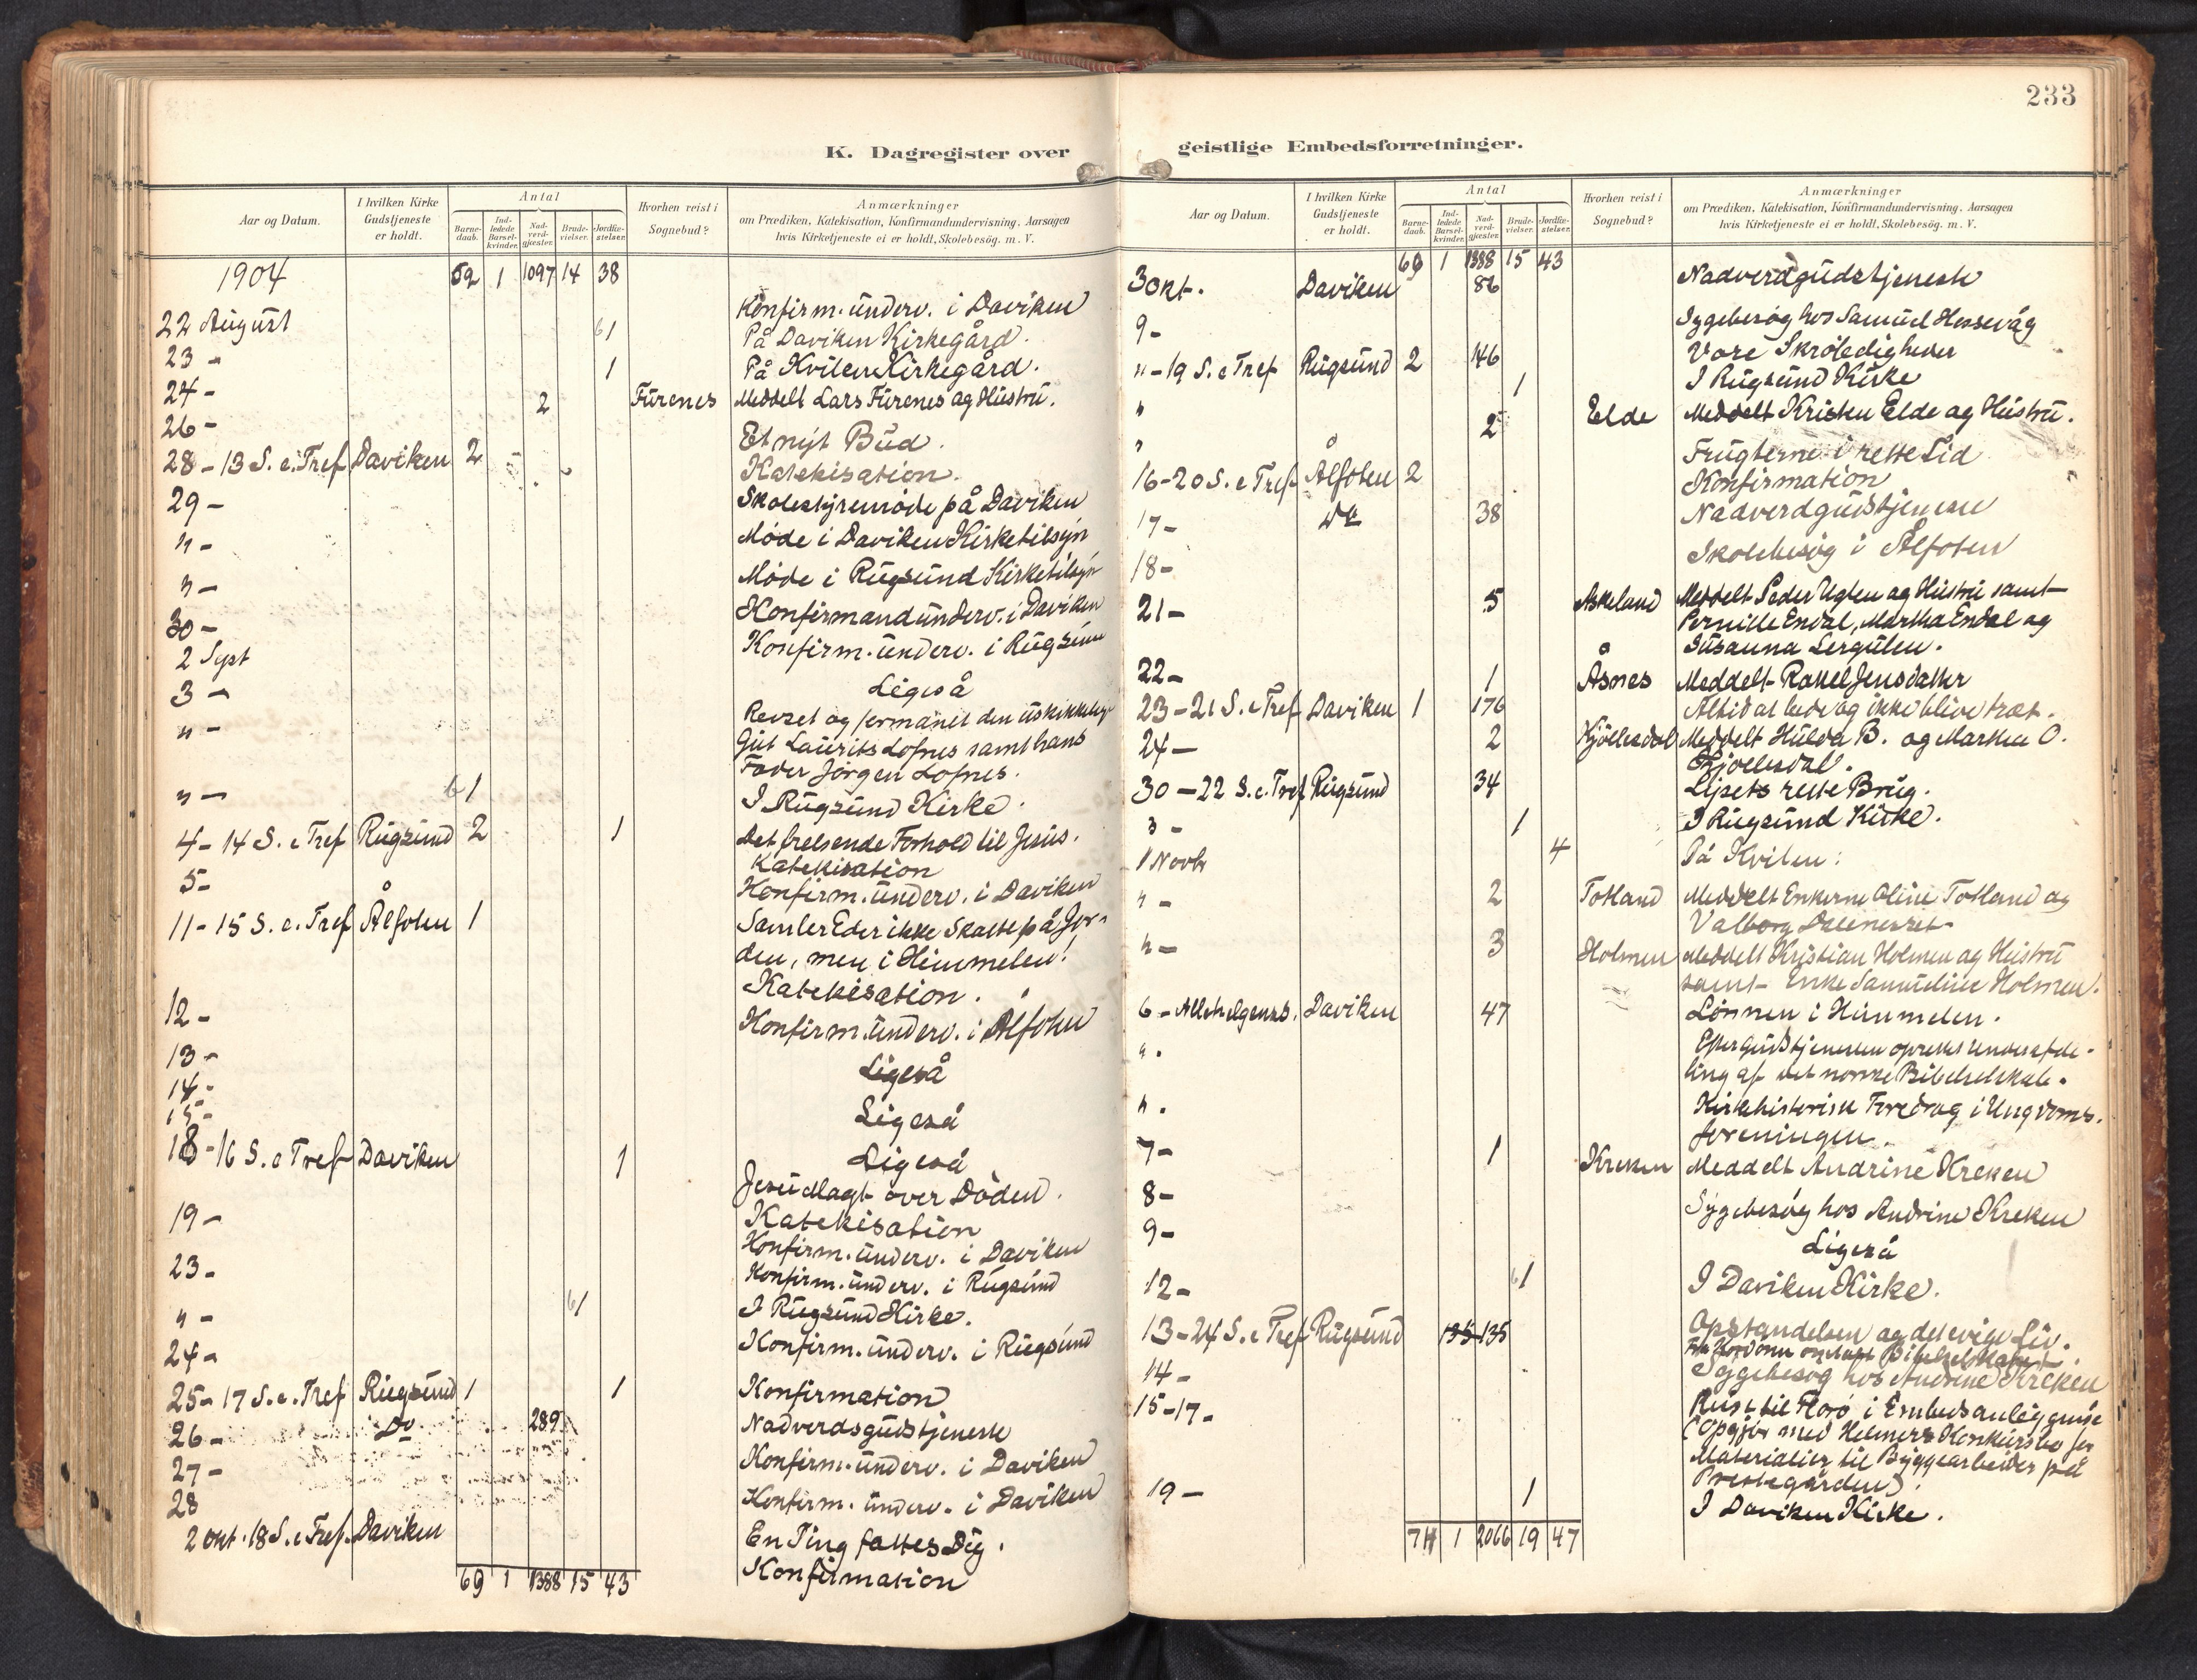 233
K. Dagregister over geistlige Embedsforretninger.
Aar og Datum. I hvilken Kirke Gudstjeneste er holdt. Antal Barnedaab. Indledede Barselkvinder. Nadverdgjester. Brudevielser. Jordfæstelser. Hvorhen reist i Sognebud? Anmærkninger om Prædiken, Katekisation, Konfirmandundervisning, Aarsagen hvis Kirketjeneste ei er holdt, Skolebesög. m. V.
1904 52 1 1097 14 38
22 August Konfirm. underv. i Daviken
23 - 1 På Daviken Kirkegård.
24 - 1 På Kvilen Kirkegård.
26 - 2 Furenes Meddelt Lars Furenes og Hustru.
28 - 13 S. e. Tref Daviken 2 Et nyt Bud.
Katekisation.
29 - Skolestyremøde på Daviken
" - Møde i Daviken Kirketilsyn
" - Møde i Rugsund Kirketilsyn
30 - Konfirmandunderv. i Daviken
2 Sept Konfirm. underv. i Rugsund
3 - Ligeså
" - Revset og formanet den uskikkelige
Gut Laurits Lofnes samt hans
Fader Jörgen Lofnes.
" - 6 1 I Rugsund Kirke.
4 - 14 S. e Tref Rugsund 2 1 Det frelsende Forhold til Jesus.
Katekisation
5 - Konfirm. underv. i Daviken
11 - 15 S. e. Tref Ålfoten 1 Samler Eder ikke Skatte på Jor-
den, men i Himmelen!
Katekisation.
12 - Konfirm. underv. i Ålfoten
13 - Ligeså
14 - Ligeså
15 - Ligeså
18 - 16 S. e Tref Daviken 1 Jesu Magt over Döden.
Katekisation
19 - Konfirm. underv. i Daviken
23 - Konfirm. underv. i Rugsund
" - 6 1 I Rugsund Kirke.
24 - Konfirm. underv. i Rugsund
25 - 17 S. e. Tref Rugsund 1 1 Konfirmation
26 - Do 289 Nadverdsgudstjeneste
27 - Konfirm. underv. i Daviken
28 Konfirm. underv. i Daviken
2 Okt. 18 S. e Tref. Daviken En Ting fattes Dig.
Konfirmation
69 1 1388 15 43
Aar og Datum. I hvilken Kirke Gudstjeneste er holdt. Antal Barnedaab. Indledede Barselkvinder. Nadverdgjester. Brudevielser. Jordfæstelser. Hvorhen reist i Sognebud? Anmærkninger om Prædiken, Katekisation, Konfirmandundervisning, Aarsagen hvis Kirketjeneste ei er holdt, Skolebesög. m. V.
69 1 1388 15 43
3 Okt. Daviken 86 Nadverdgudstjeneste
9 - Sygebesøg hos Samuel Hessevåg
" - 19 S. e Tref Rugsund 2 146 Vore Skrøbeligheder
" 1 I Rugsund Kirke
" 2 Elde Meddelt Kristen Elde og Hustru.
16 - 20 S. e Tref Ålfoten 2 Frugterne i rette Tid
Konfirmation
17 - Do 38 Nadverdgudstjeneste
18 - Skolebesøg i Ålfoten
21 - 5 Askeland Meddelt Peder Ugten og Hustru samt
Pernille Endal, Martha Endal og
Susanna Lergulen.
22 - 1 Åsnes Meddelt Rakel Jensdatter
23 - 21 S. e Tref Daviken 1 176 Altid at bede og ikke blive træt.
24 - 2 Kjöllesdal Meddelt Hulda B. og Marthe O.
Kjöllesdal.
30 - 22 S. e. Tref Rugsund 34 Lysets rette Brug.
" - 1 I Rugsund Kirke.
1 Novbr 4 På Kvilen:
" - 2 Totland Meddelt Enkerne Oline Totland og
Valborg
" - 3 Holmen Meddelt Kristian Holmen og Hustru
samt Enke Samueline Holmen.
6 - Allehelgensd. Daviken 47 Lönnen i Himmelen.
" - Efter Gudstjenesten oprettes Underafde-
ling af det norske Bibelselskab.
" - Kirkehistorisk Foredrag i Ungdoms-
foreningen.
7 - 1 Kreken Meddelt Andrine Kreken
8 - Sygebesøg hos Andrine Kreken
9 - Ligeså
12 - 6 1 I Daviken Kirke.
13 - 24 S. e Tref Rugsund 135 135 Opstandelsen og det evige Liv.
Bibelselskabet.
14 - Sygebesøg hos Andrine Kreken
15-17 - Reist til Florø i Embedsanliggende
(Opgjör med Helmers Konkursbo for
Materialier til Byggearbeider på
Prestegården).
19 - 1 I Daviken Kirke.
74 1 2066 19 47